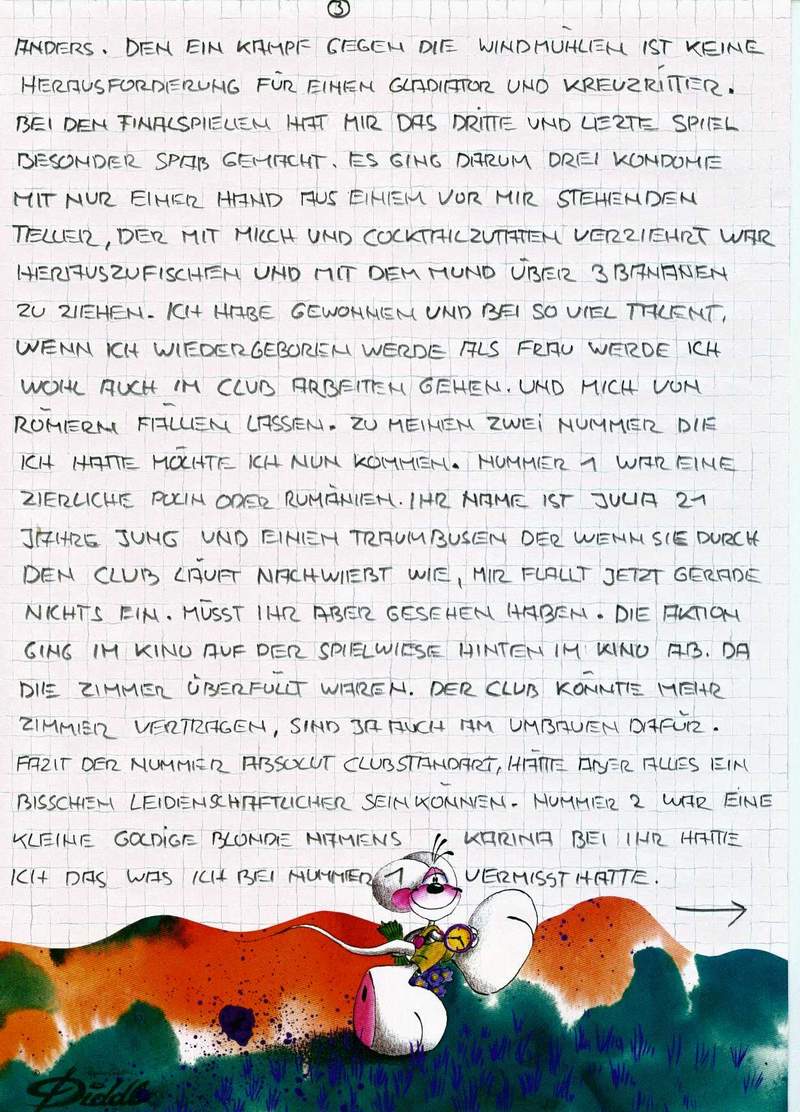 3
ANDERS. DEN EIN KAMPF GEGEN DIE WINDMÜHLEN IST KEINE
HERAUSFORDIERUNG FÜR EINEN GLADIATOR UND KREUZRITTER.
BEI DEN FINALSPIELEN HAT MIR DAS DRITTE UND LEZTE SPIEL
BESONDER SPAß GEMACHT. ES GING DARUM DREI KONDOME
MIT NUR EINER HAND AUS EINEM VOR MIR STEHENDEN
TELLER, DER MIT MILCH UND COCKTAILZUTATEN VERZIEHRT WAR
HERAUSZUFISCHEN UND MIT DEM MUND ÜBER 3 BANANEN
ZU ZIEHEN. ICH HABE GEWONNEN UND BEI SO VIEL TALENT,
WENN ICH WIEDERGEBOREN WERDE ALS FRAU WERDE ICH
WOHL AUCH IM CLUB ARBEITEN GEHEN. UND MICH VON
RÖMERN FÄLLEN LASSEN. ZU MEINEN ZWEI NUMMER DIE
ICH HATTE MÖCHTE ICH NUN KOMMEN. NUMMER 1 WAR EINE
ZIERLICHE POLIN ODER RUMÄNIEN. IHR NAME IST JULIA 21
JAHRE JUNG UND EINEN TRAUMBUSEN DER WENN SIE DURCH
DEN CLUB LÄUFT NACHWIEßT WIE, MIR FLALLT JETZT GERADE
NICHTS EIN. MÜSST IHR ABER GESEHEN HABEN. DIE AKTION
GING IM KINO AUF DER SPIELWIESE HINTEN IM KINO AB. DA
DIE ZIMMER ÜBERFÜLLT WAREN. DER CLUB KÖNNTE MEHR
ZIMMER VERTRAGEN, SIND JA AUCH AM UMBAUEN DAFÜR.
FAZIT DER NUMMER ABSOLUT CLUBSTANDART, HÄTTE ABER ALLES EIN
BISSCHEN LEIDENSCHAFTLICHER SEIN KÖNNEN. NUMMER 2 WAR EINE
KLEINE GOLDIGE BLONDE NAMENS KARINA BEI IHR HATTE
ICH DAS WAS ICH BEI NUMMER 1 VERMISST HATTE.
Diddl